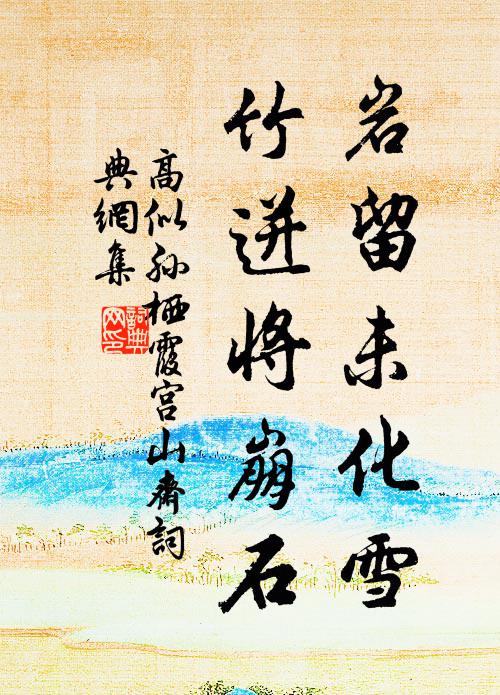 岩留未化雪
竹迸将崩石
高似孙栖霞宫山斋詞
典網集
詞典
网印